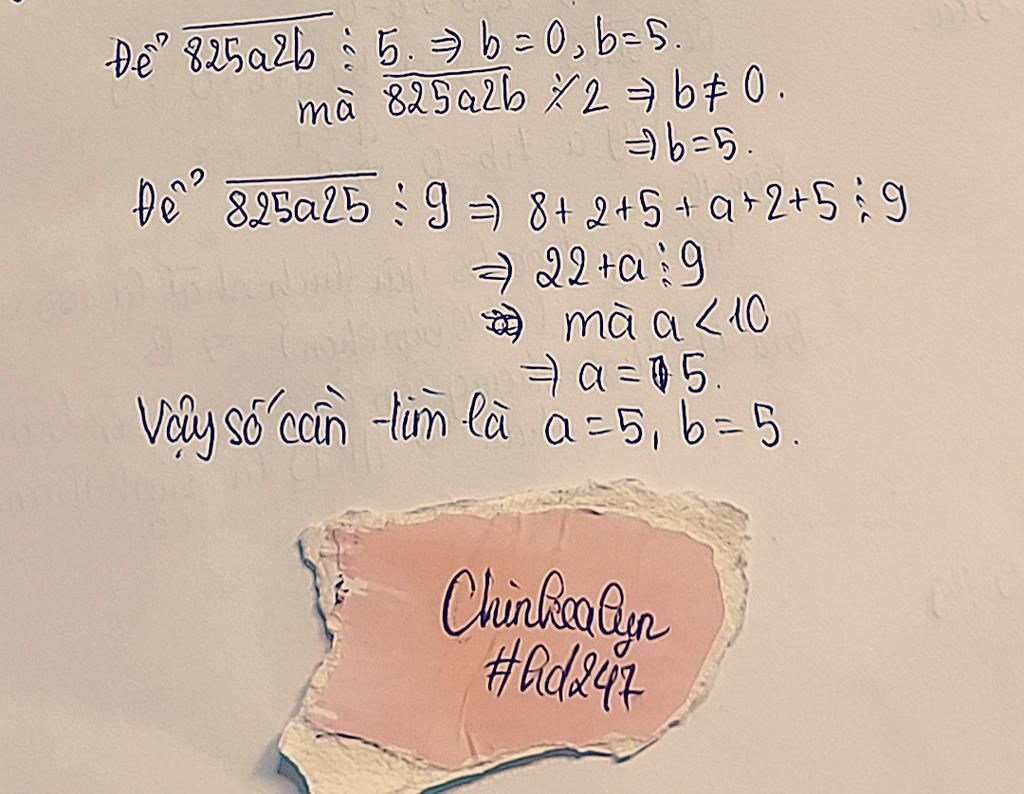 Để 825a2b ⋮ 5. ⇒ b = 0, b = 5.
mà 825a2b ⋮̸ 2 ⇒ b ≠ 0.
⇒ b = 5.
Để 825a25 ⋮ 9 ⇒ 8 + 2 + 5 + a + 2 + 5 ⋮ 9
⇒ 22 + a ⋮ 9
mà a < 10
⇒ a = 5.
Vậy số cần tìm là a = 5, b = 5.
#hd247